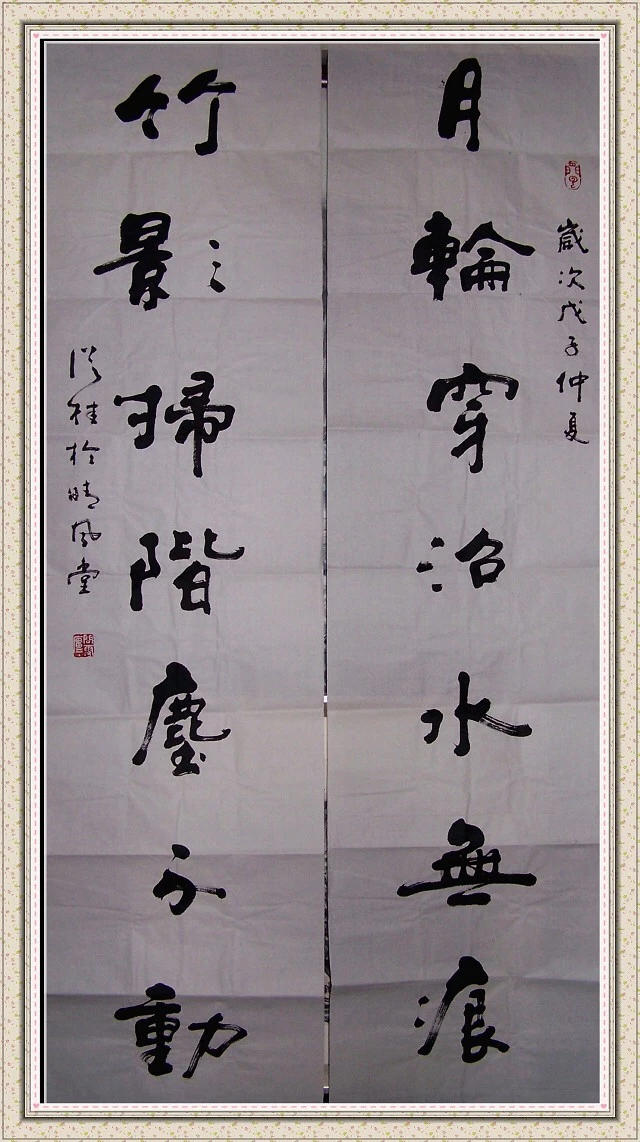 歲次戊子仲夏
月輪穿沼水無痕
竹影掃階塵不動
桂於晴風堂